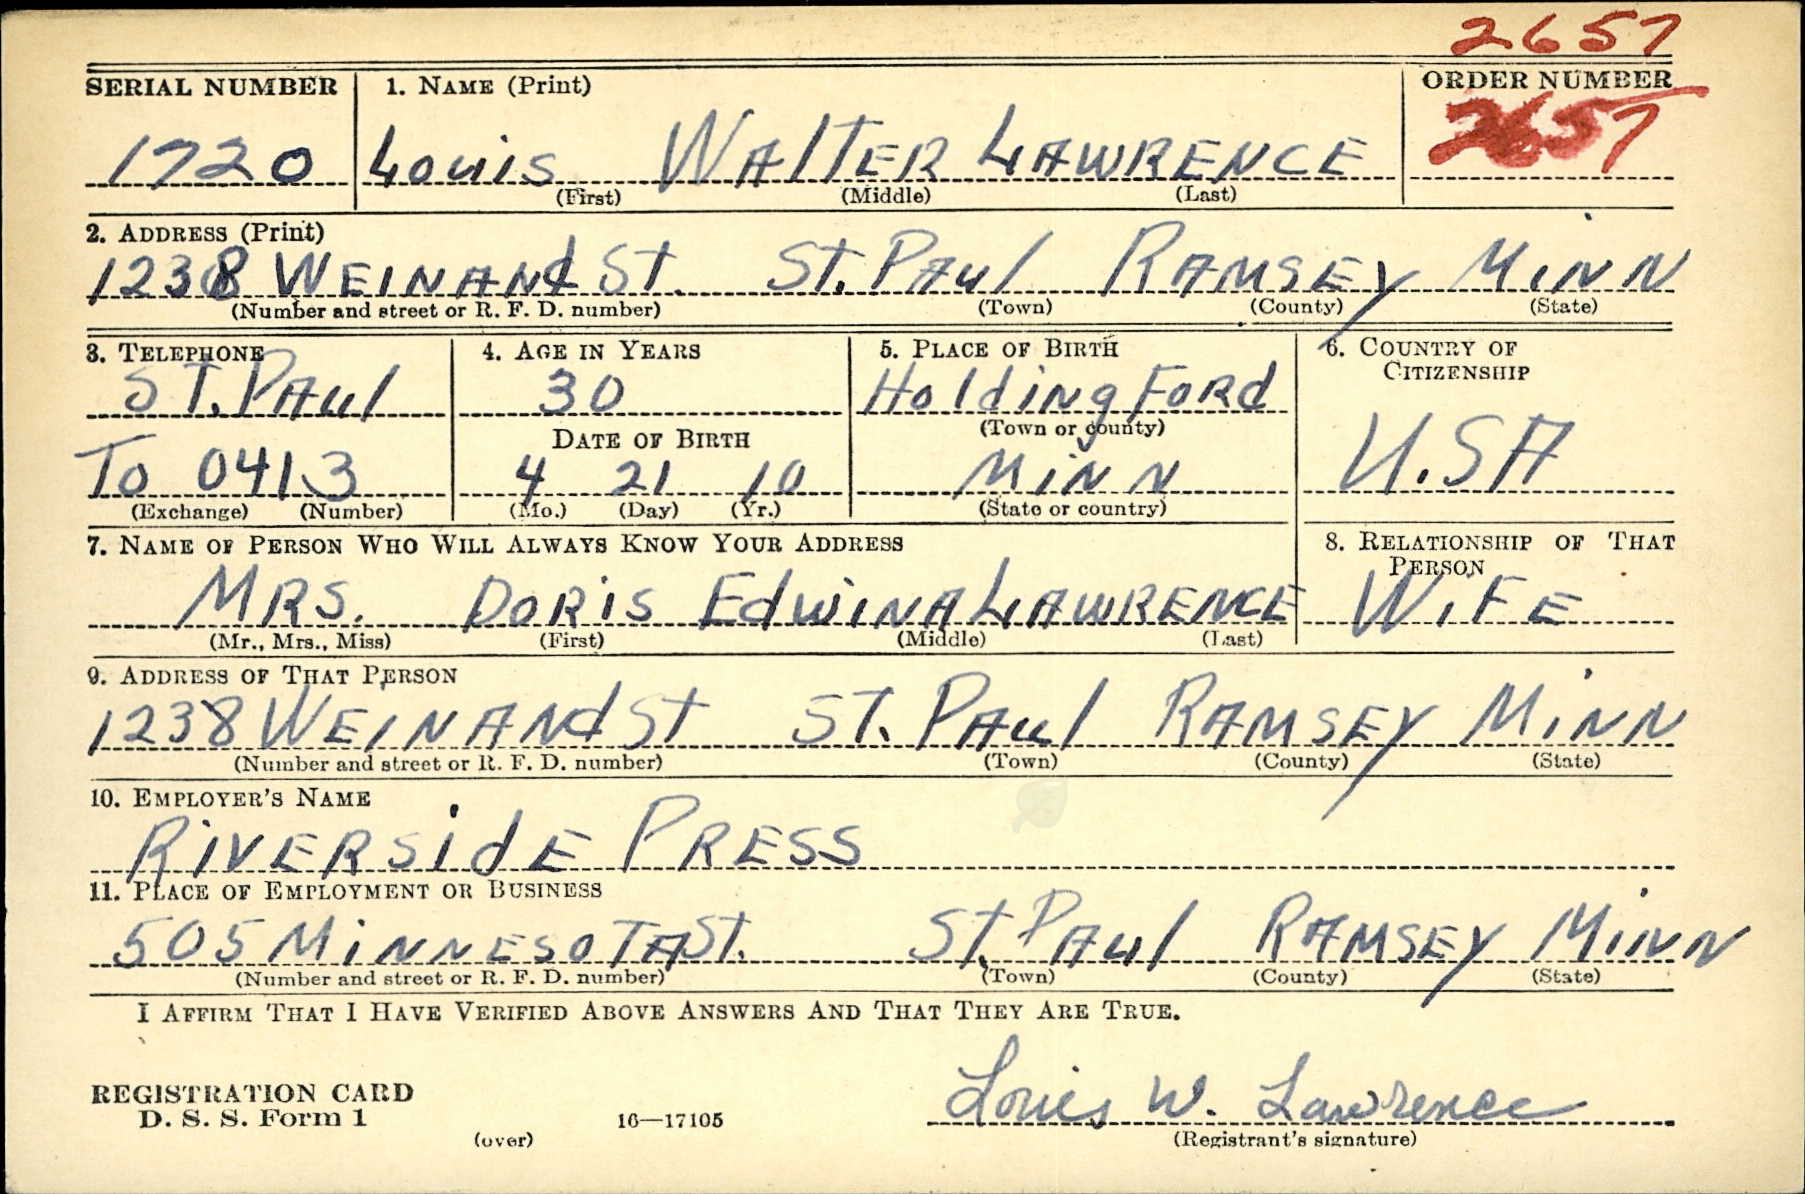 2657
SERIAL NUMBER 1. NAME (Print) ORDER NUMBER
1720 Louis WAlTER LAWRENCE 2657
(First) (Middle) (Last)
2. ADDRESS (Print)
1238 WEINANd ST. ST. PAul RAMSEY MiNN
(Number and street or R. F. D. number) (Town) (County) (State)
3. TELEPHONE 4. AGE IN YEARS 5. PLACE OF BIRTH 6. COUNTRY OF
CITIZENSHIP
ST. PAul 30 HoldingFoRd
DATE OF BIRTH (Town or county)
To 0413 4 21 10 MiNN U.SA
(Exchange) (Number) (Mo.) (Day) (Yr.) (State or country)
7. NAME OF PERSON WHO WILL ALWAYS KNOW YOUR ADDRESS 8. RELATIONSHIP OF THAT
PERSON
MRS. DoRiS EdwiNA LAWRENCE WiFE
(Mr., Mrs., Miss) (First) (Middle) (Last)
9. ADDRESS OF THAT PERSON
1238 WEiNANd ST ST. PAul RAMSEY MiNN
(Number and street or R. F. D. number) (Town) (County) (State)
10. EMPLOYER'S NAME
RiVERSidE PRESS
11. PLACE OF EMPLOYMENT OR BUSINESS
505 MiNNESOTA ST. ST. PAul RAMSEY MiNN
(Number and street or R. F. D. number) (Town) (County) (State)
I AFFIRM THAT I HAVE VERIFIED ABOVE ANSWERS AND THAT THEY ARE TRUE.
REGISTRATION CARD
D. S. S. Form 1 16—17105 Louis W. Lawrence
(over) (Registrant's signature)